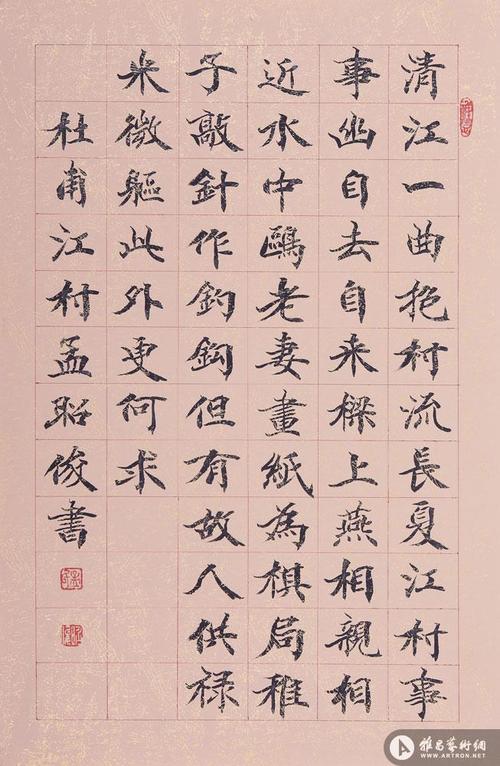 清江一曲抱村流長夏江村事
事幽自去自来樑上燕相親相
近水中鷗老妻畫紙為棋局稚
子敲針作釣鈎但有故人供禄
米微軀此外更何求
杜甫江村孟昭俊書
雅昌藝術網
WWW.ARTRON.NET